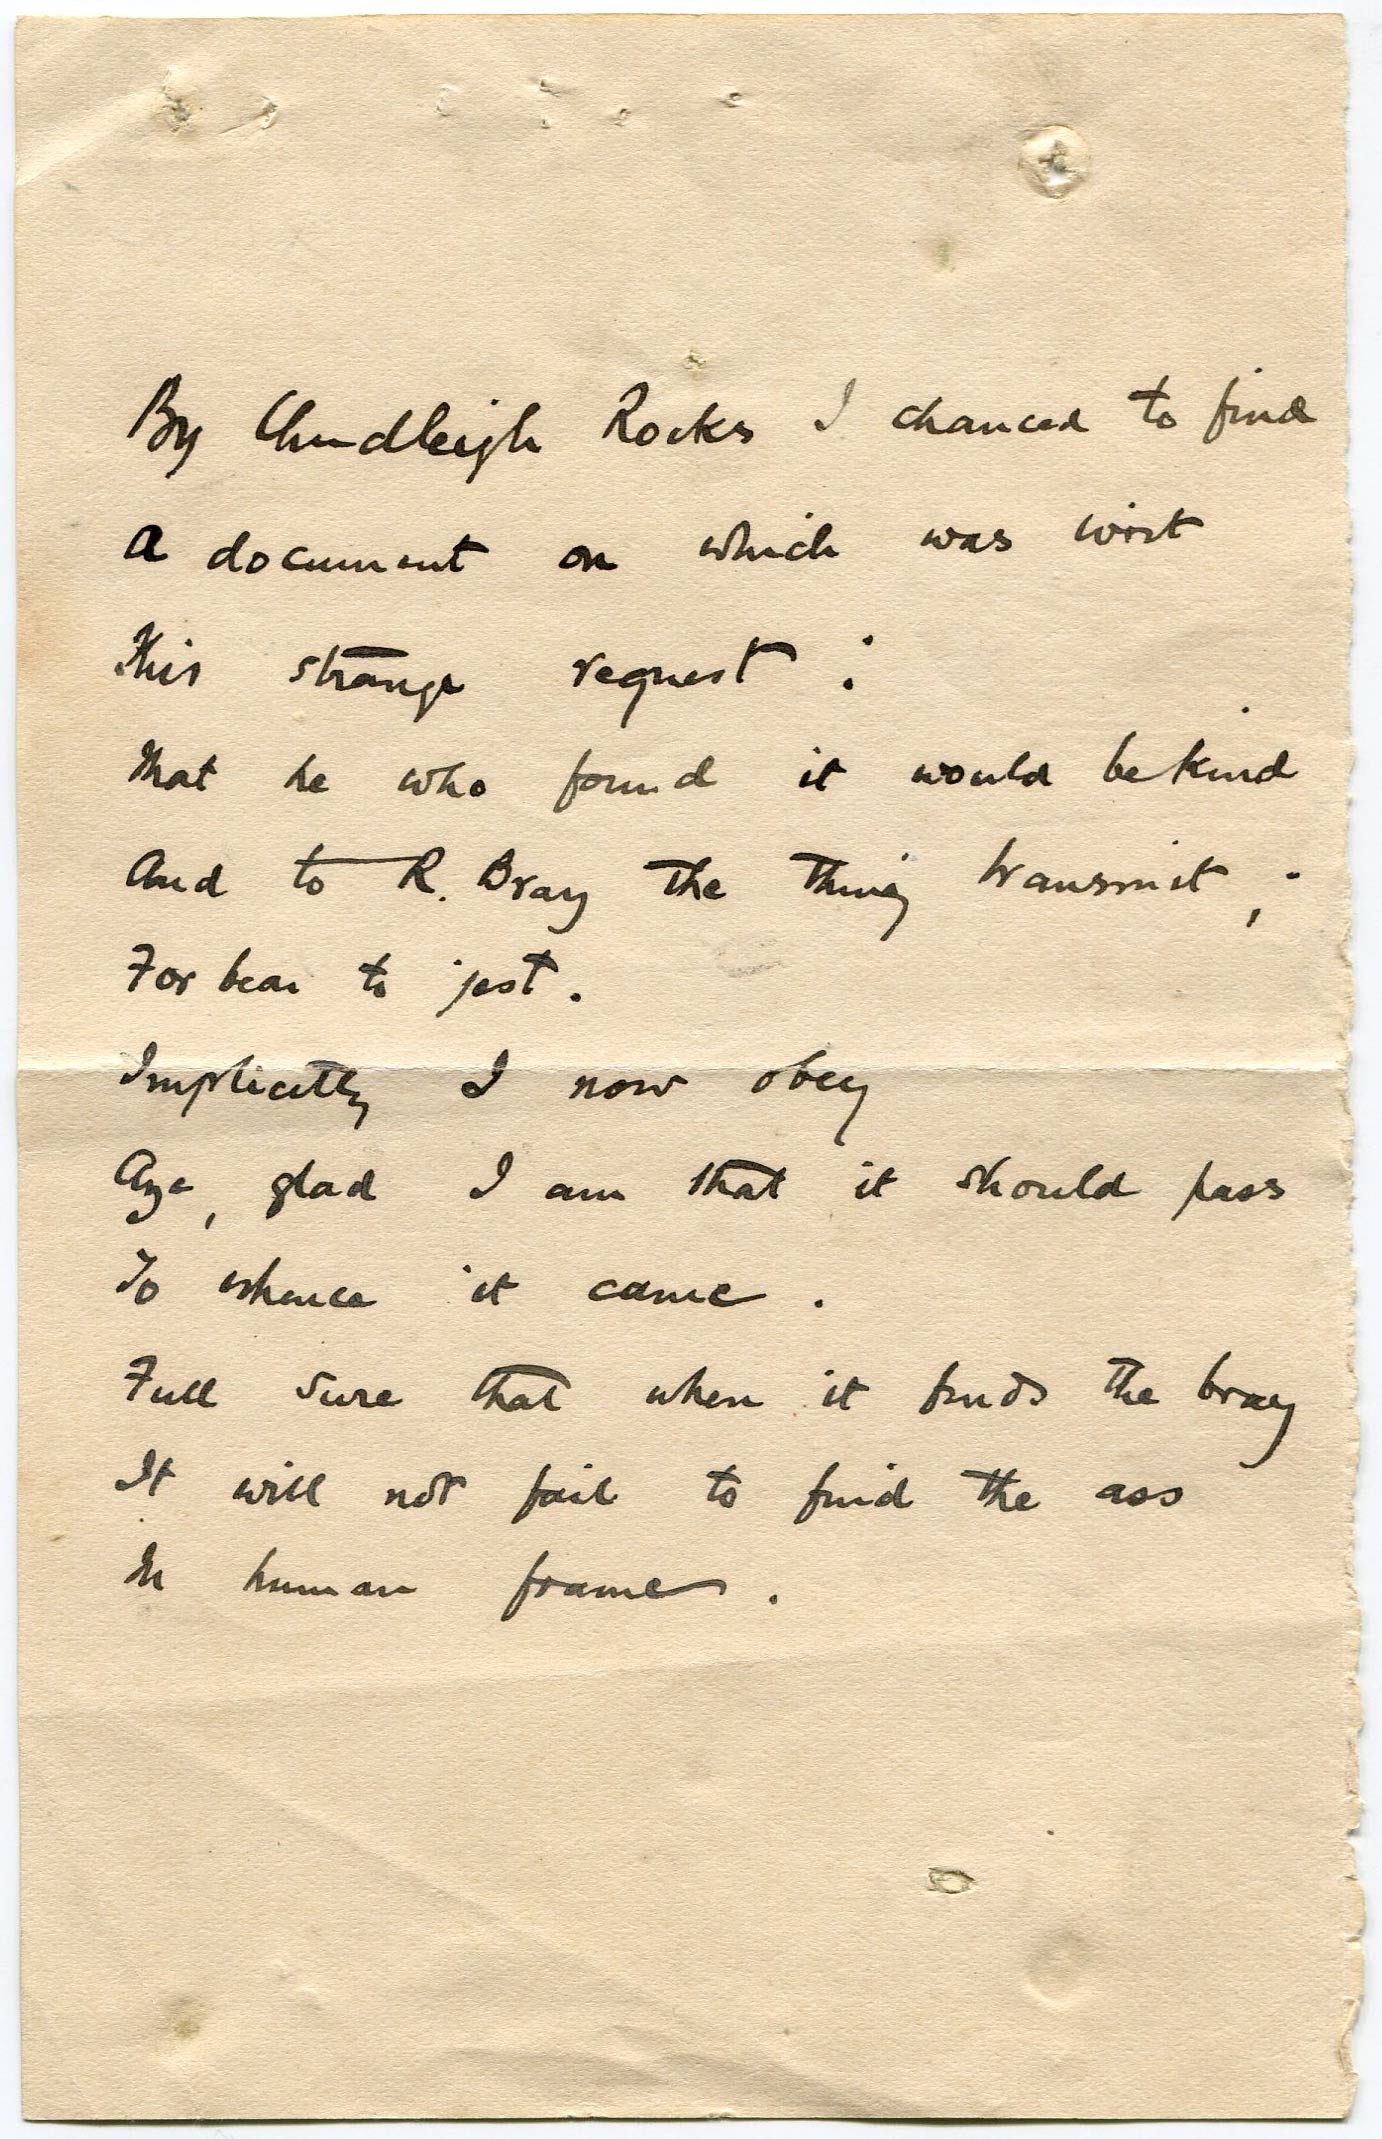 By Chudleigh Rocks I chanced to find
A document on which was writ
This strange request :
That he who found it would be kind
And to R. Bray the thing transmit ;
For bear to jest .
Implicitly I now obey
Aye , glad I am that it should pass
To whence it came .
Full sure that when it finds the bray
It will not fail to find the ass
In human frame .